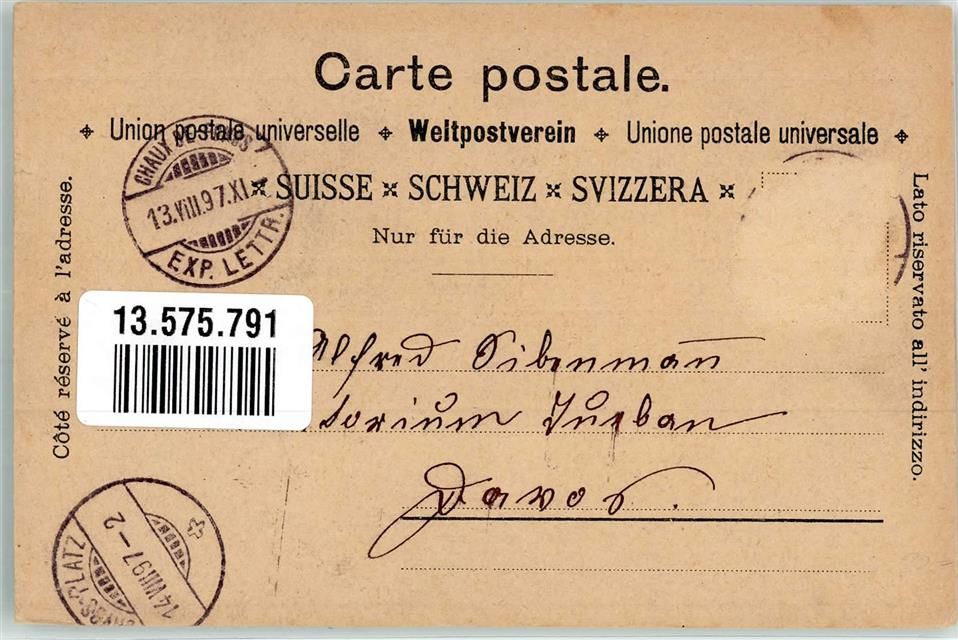 Carte postale.
Union postale universelle Weltpostverein Unione postale universale
SUISSE SCHWEIZ SVIZZERA
Nur für die Adresse.
Côté réservé à l'adresse.
Lato riservato all' indirizzo.
CHAUX DE FONDS
13.VIII.97.XI
EXP. LETTR.
13.575.791
Alfred Sibenmann
torium Turban
Davos.
PLATZ
14.VIII.97-2